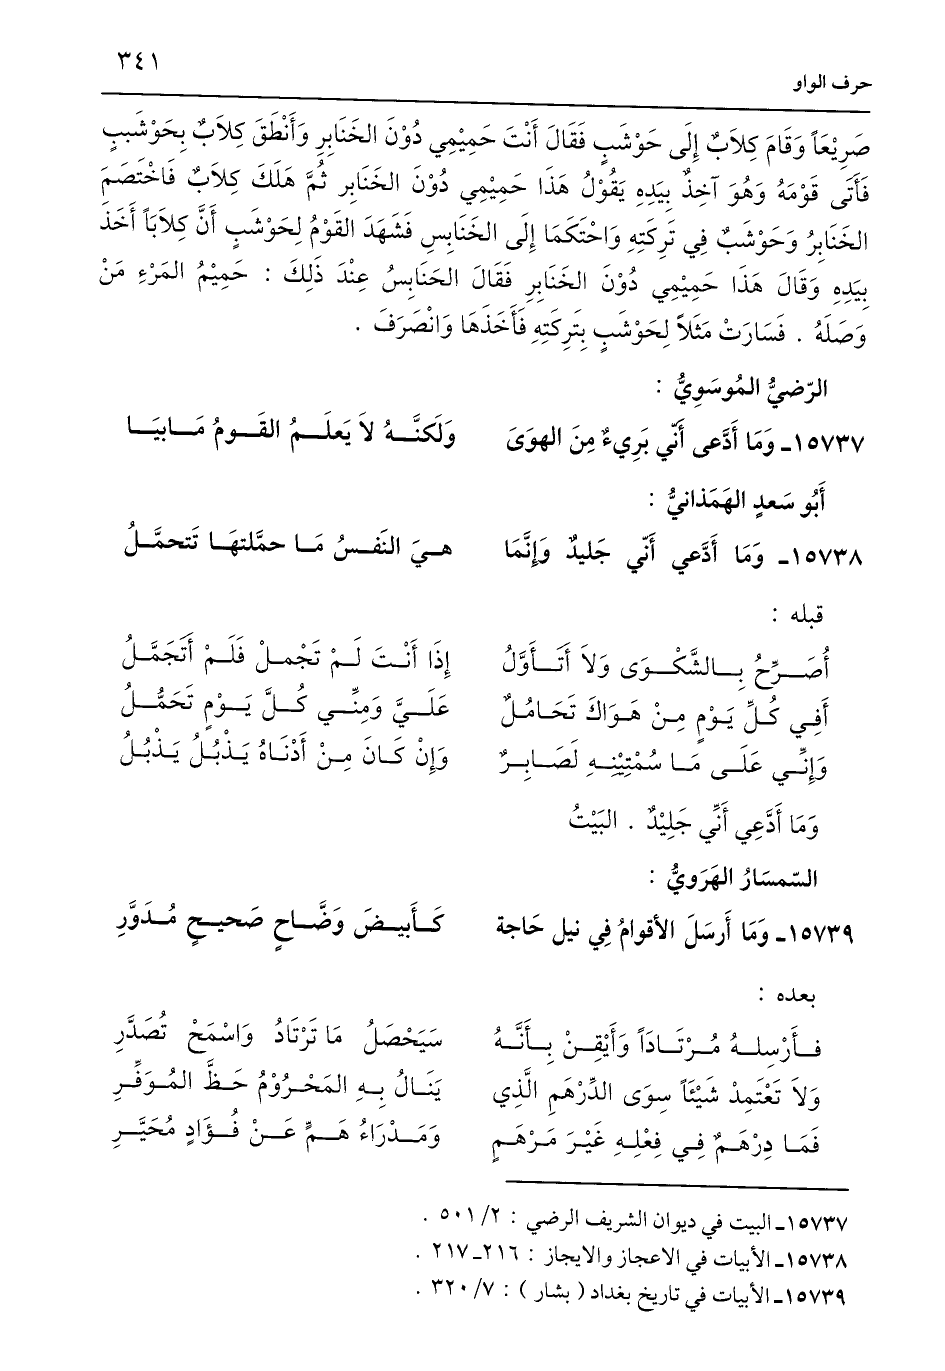 ٣٤١
حرف الواو
صَرِيْعَاً وَقَامَ كِلاَبٌ إِلَى حَوْشَبٍ فَقَالَ أَنْتَ حَمِيْمِي دُوْنَ الخَنَابِرِ وَأَنْطَقَ كِلاَبٌ بِحَوْشَبٍ
فَأَتَى قَوْمَهُ وَهُوَ آخِذٌ بِيَدِهِ يَقُوْلُ هَذَا حَمِيْمِي دُوْنَ الخَنَابِرِ ثُمَّ هَلَكَ كِلاَبٌ فَاخْتَصَمَ
الخَنَابِرُ وَحَوْشَبٌ فِي تَرِكَتِهِ وَاحْتَكَمَا إِلَى الخَنَابِسِ فَشَهَدَ القَوْمُ لِحَوْشَبٍ أَنَّ كِلاَبَاً أَخَذَ
بِيَدِهِ وَقَالَ هَذَا حَمِيْمِي دُوْنَ الخَنَابِرِ فَقَالَ الخَنَابِسُ عِنْدَ ذَلِكَ : حَمِيْمُ المَرْءِ مَنْ
وَصَلَهُ . فَسَارَتْ مَثَلاً لِحَوْشَبٍ بِتَرِكَتِهِ فَأَخَذَهَا وَانْصَرَفَ .
الرّضيُّ المُوسَوِيُّ :
١٥٧٣٧ـ وَمَا أَدَّعى أنّي بَرِيءٌ مِنَ الهوَىَ وَلَكنَّـهُ لاَ يَعلَـمُ القَـومُ مَـابيَـا
أَبُو سَعدٍ الهَمَذانيُّ :
١٥٧٣٨ـ وَمَا أَدَّعي أَنّي جَليدٌ وَإِنَّمَا هـيَ النَفـسُ مَـا حمَّلتهَـا تَتحمَّـلُ
قبله :
أُصَـرِّحُ بِـالشَّكْـوَى وَلاَ أَتَـأَوَّلُ إِذَا أَنْـتَ لَـمْ تَجْمِـلْ فَلَـمْ أَتَجَمَّـلُ
أَفِي كُلِّ يَوْمٍ مِـنْ هَـوَاكَ تَحَامُـلٌ عَلَـيَّ وَمِنِّـي كُـلَّ يَـوْمٍ تَحَمُّـلُ
وَإِنِّـي عَلَـى مَـا سُمْتِيْنِـهِ لَصَـابِـرٌ وَإِنْ كَـانَ مِـنْ أَدْنَـاهُ يَـذْبُـلُ يَـذْبُـلُ
وَمَا أَدَّعِي أَنِّي جَلِيْدٌ . البَيْتُ
السّمسَارُ الهَرَويُّ :
١٥٧٣٩ـ وَمَا أَرسَلَ الأقوامُ فِي نيل حَاجة كَـأَبيـضَ وَضَّـاحٍ صَحيـحٍ مُـدَوَّرِ
بعده :
فَـأَرْسِلـهُ مُـرْتَـادَاً وَأَيْقِـنْ بِـأَنَّـهُ سَيَحْصَلُ مَا تَرْتَادُ وَاسْمَحْ تُصَدَّرِ
وَلاَ تَعْتَمِدْ شَيْئَاً سِوَى الدِّرْهَمِ الَّذِي يَنَـالُ بِـهِ المَحْـرُوْمُ حَـظَّ المُـوَفِّـرِ
فَمَـا دِرْهَـمٌ فِـي فِعْلِهِ غَيْـرَ مَـرْهَـمٍ وَمَـدْرَاءُ هَـمٍّ عَـنْ فُـؤَادٍ مُحَيَّـرِ
١٥٧٣٧ـ البيت في ديوان الشريف الرضي : ٢/ ٥٠١ .
١٥٧٣٨ـ الأبيات في الاعجاز والايجاز : ٢١٦ـ٢١٧ .
١٥٧٣٩ـ الأبيات في تاريخ بغداد ( بشار ) : ٧/ ٣٢٠ .